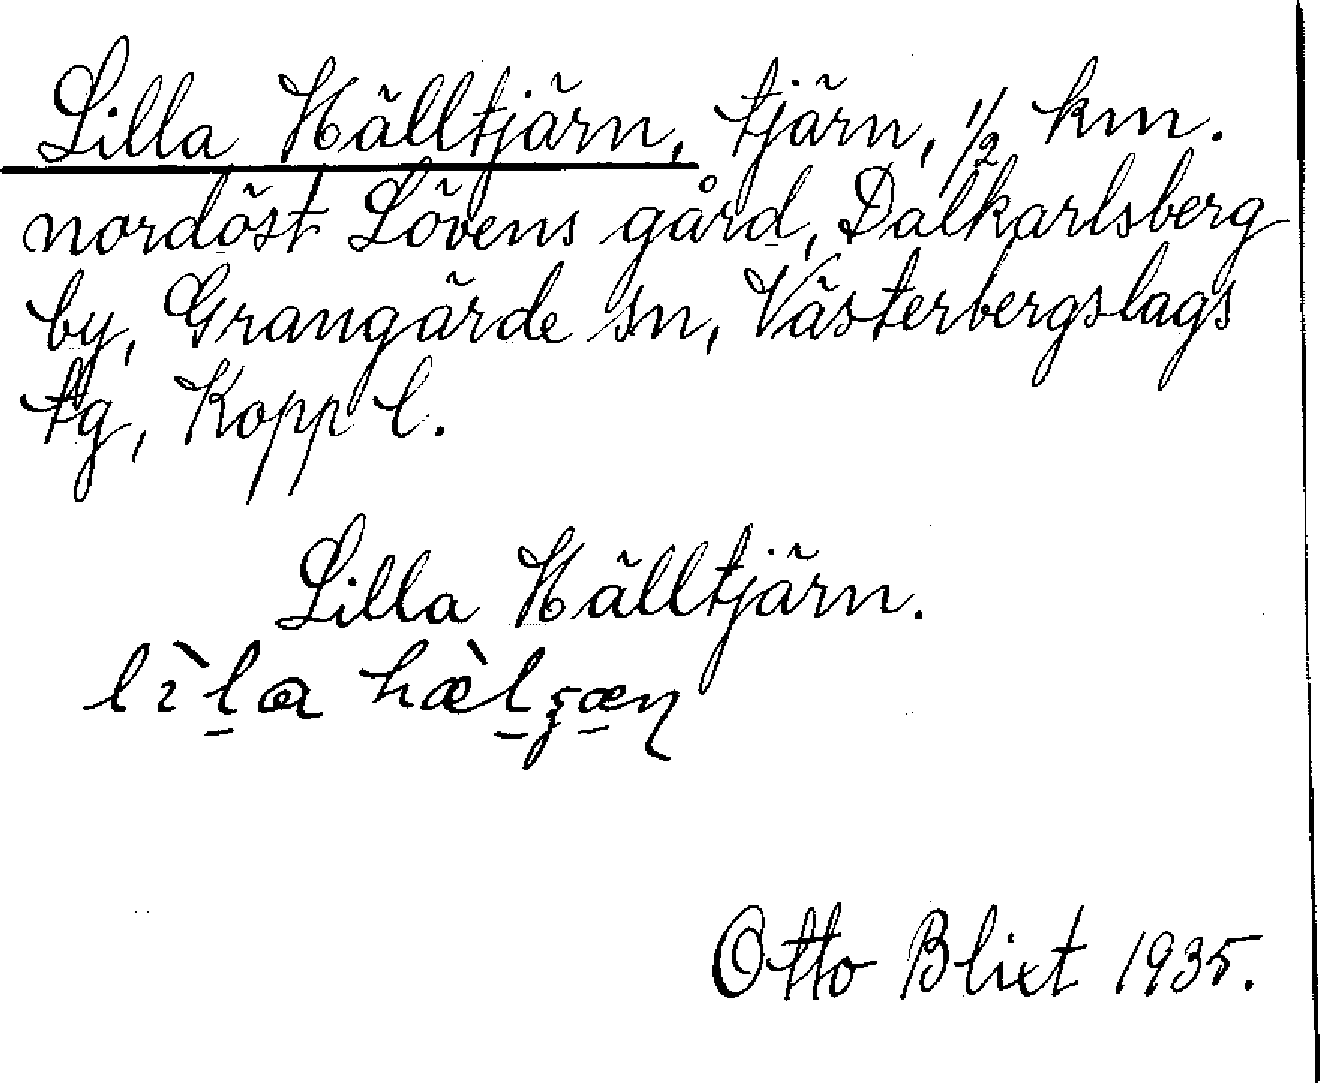 Lilla Hälltjärn, tjärn, 1/2 km.
nordöst Lövens gård, Dalkarlsberg
by, Grangärde sn, Västerbergslags
tg, Kopp l.
Lilla Hälltjärn.
Otto Blixt 1935.